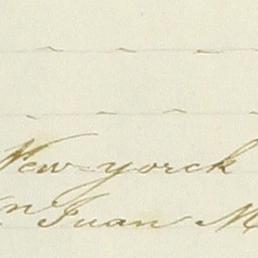 New-yorck
Dn. Juan M